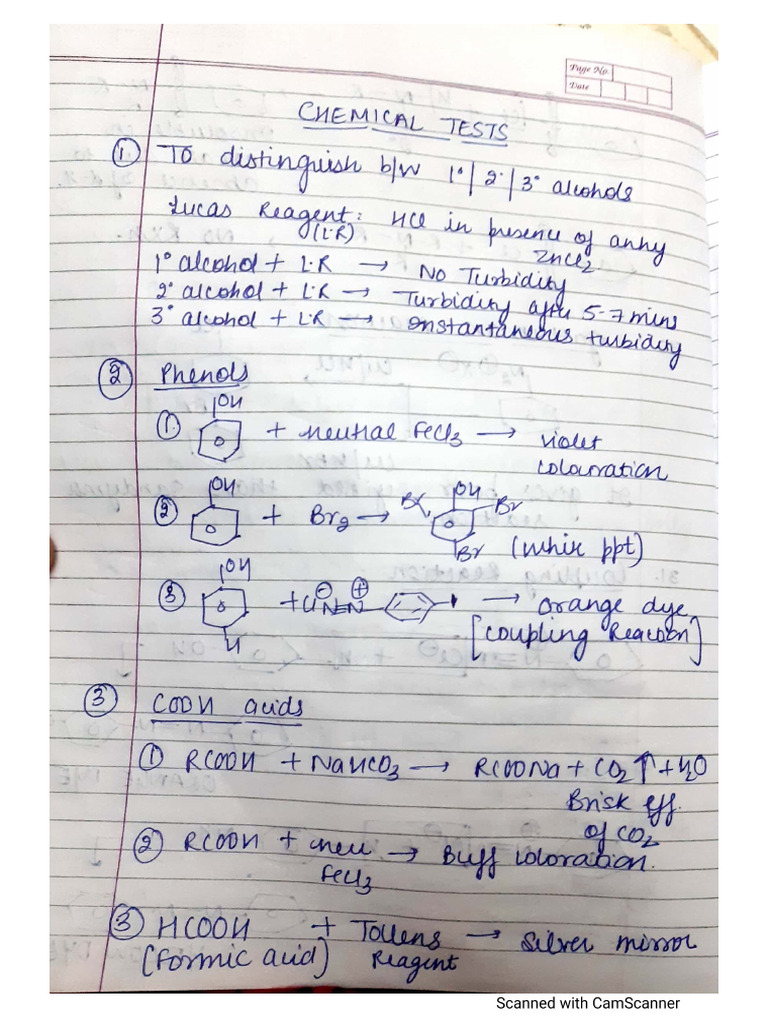 Page No.
Date
CHEMICAL TESTS
① To distinguish b/w 1°/2°/3° alcohols
Lucas Reagent: HCl in presence of anhy
(L.R) ZnCl2
1° alcohol + L.R → No Turbidity
2° alcohol + L.R → Turbidity after 5-7 mins
3° alcohol + L.R → instantaneous turbidity
② Phenols
OH
① + neutral FeCl3 → violet
colouration
OH OH
② + Br2 → Br Br
Br (white ppt)
OH
③ + Cl⊖ N≡N⊕ → orange dye
H [Coupling Reaction]
③ COOH acids
① RCOOH + NaHCO3 → RCOONa + CO2↑ + H2O
Brisk eff.
of CO2
② RCOOH + neu → Buff coloration.
FeCl3
③ HCOOH + Tollens → silver mirror
(Formic acid) Reagent
Scanned with CamScanner